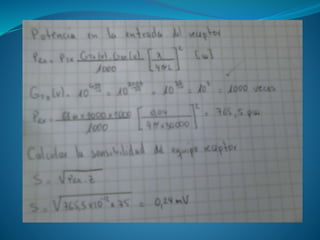 Potencia en la entrada del receptor
Prx = Ptx Gtx(v) Grx(v) / 1000 [λ / 4πL]² [w]
Gtx(v) = 10 = 10 = 10 = 10³ = 1000 veces
Prx = 1000 × 1000 / 1000 [0,04 / 4π × 30000]² = 765,5 pw
Calcular la sensibilidad de equipo receptor
S = √Prx . Z
S = √765,5 × 10⁻¹² × 75 = 0,24 mV